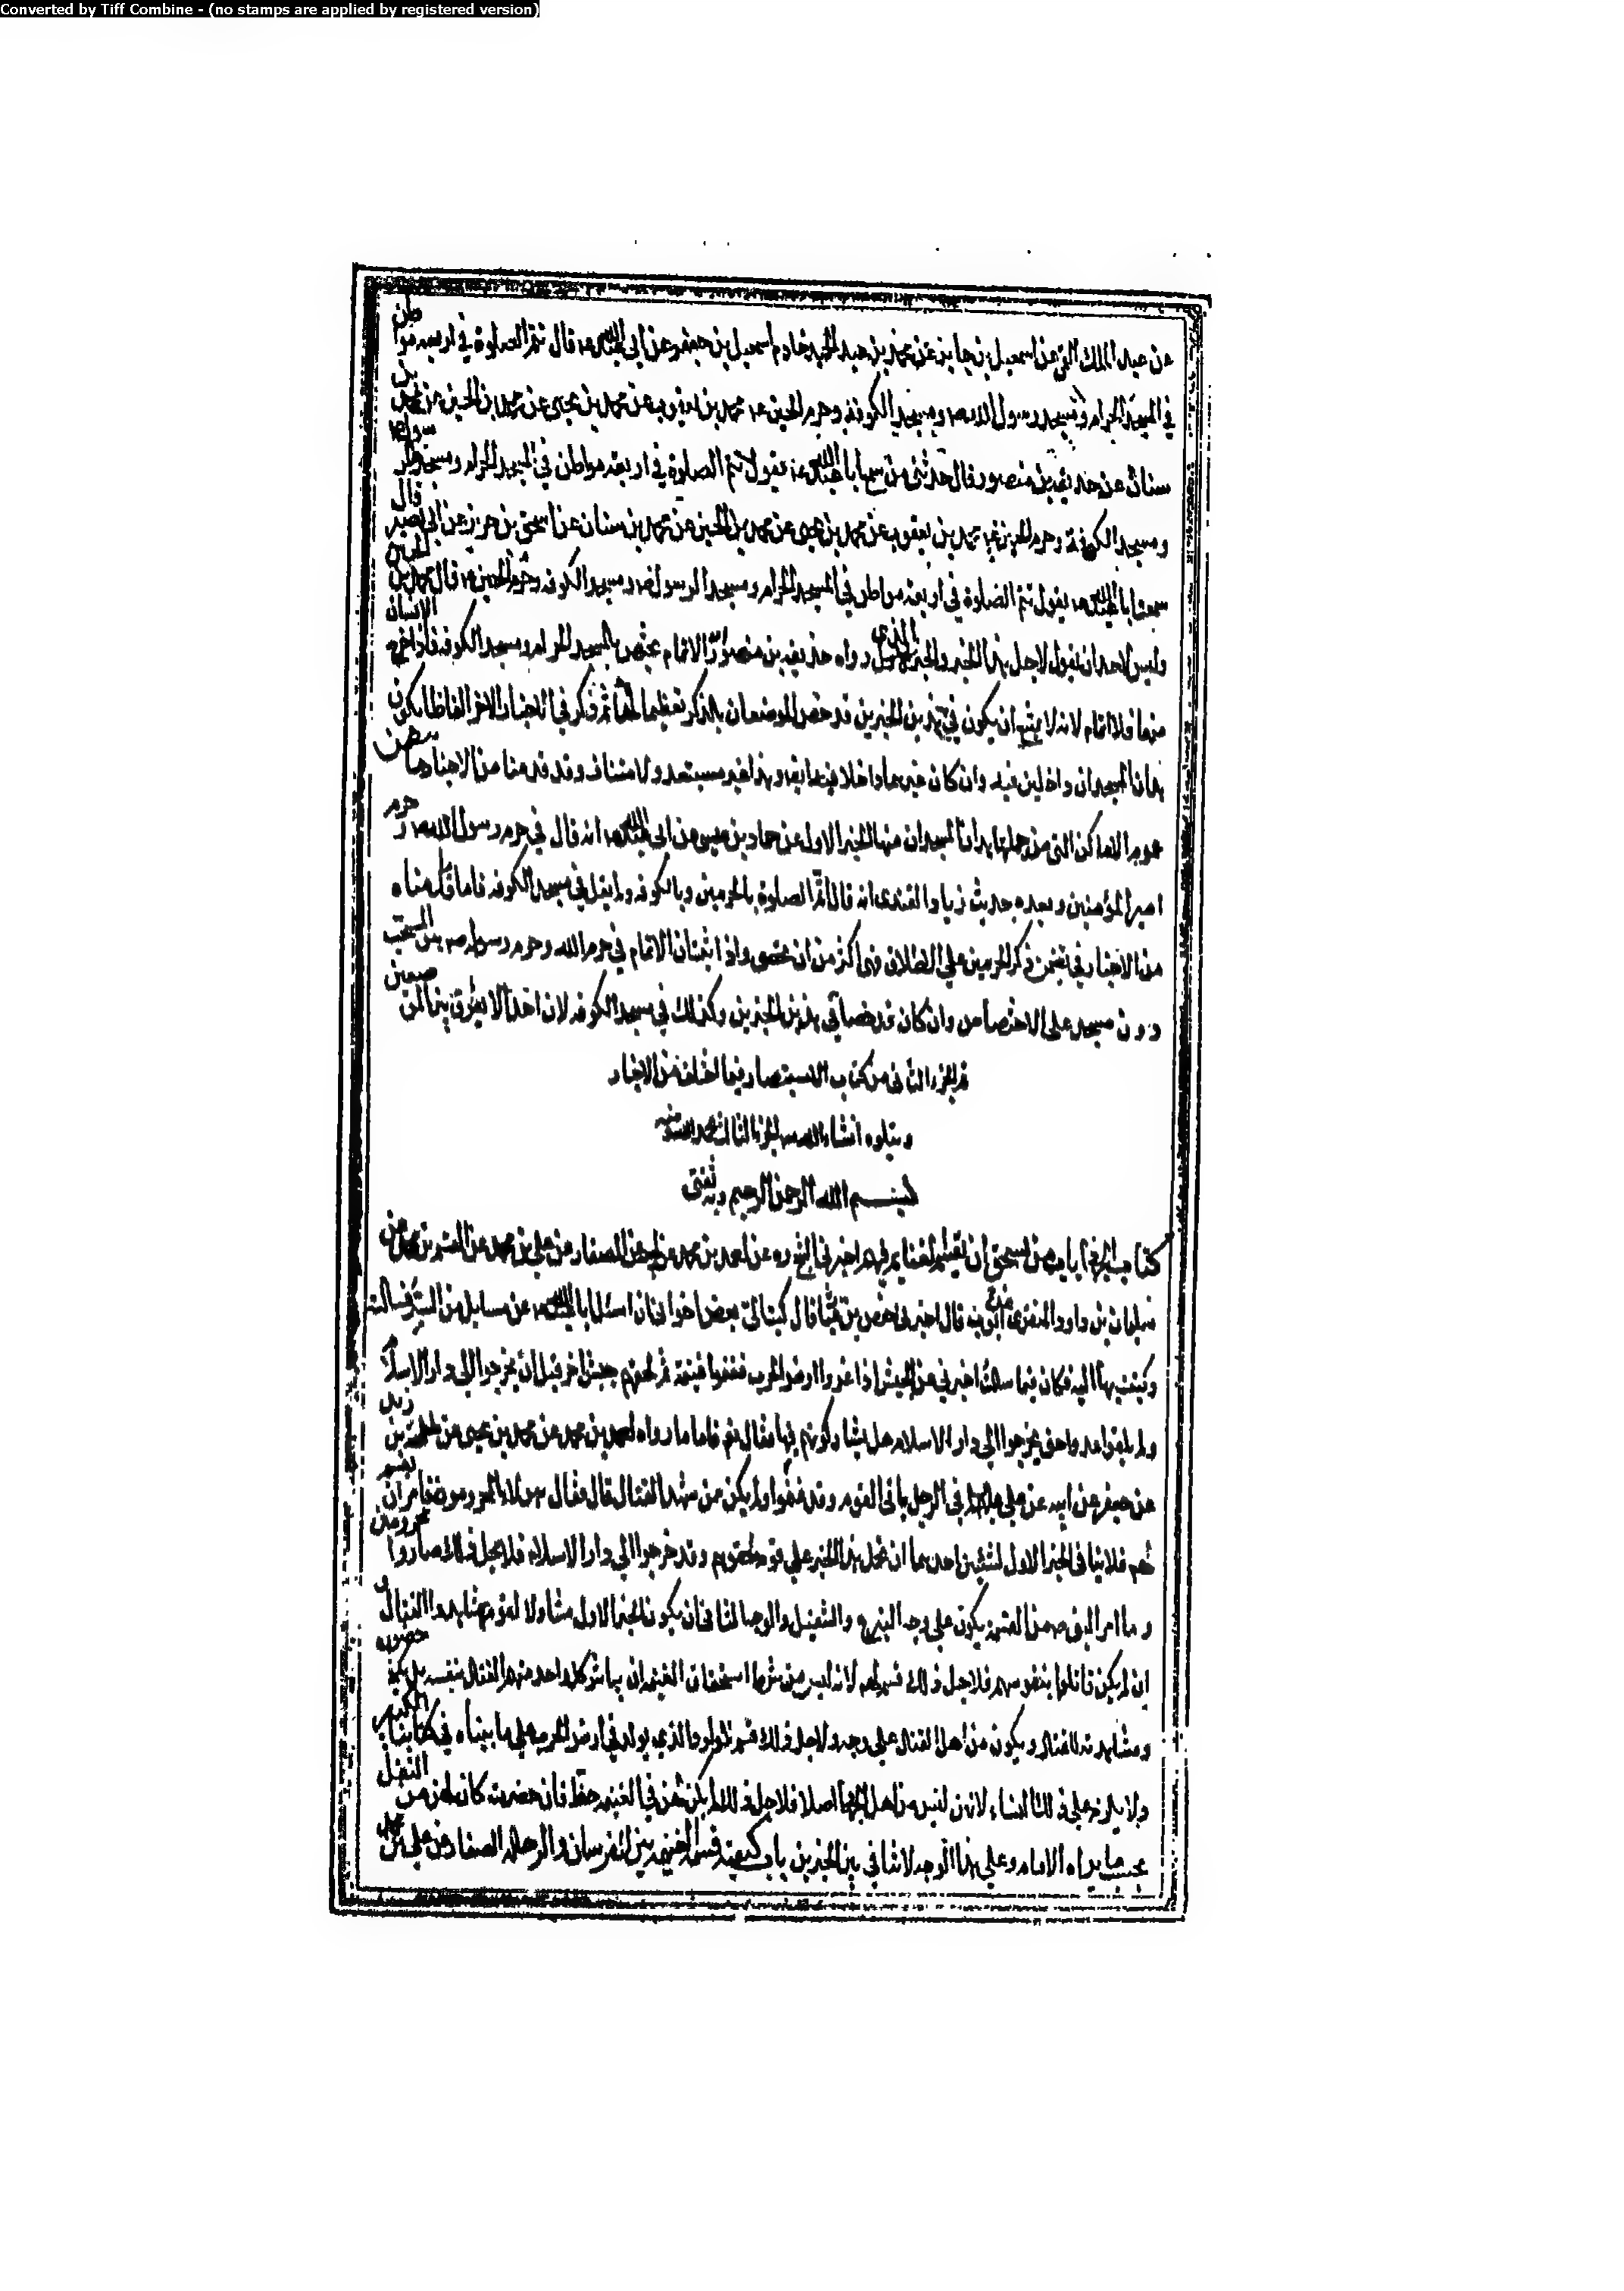 Converted by Tiff Combine - (no stamps are applied by registered version)
عن عبد الملك القمي عن اسمعيل بن جابر عن محمد بن عبد الحميد خادم اسمعيل بن جعفر عن ابي عبدالله ع قال تتم الصلوة في اربعة مواطن
في المسجد الحرام ومسجد رسول الله ص ومسجد الكوفة وحرم الحسين ع محمد بن يعقوب عن محمد بن يحيى عن محمد بن الحسين عن محمد بن
سنان عن حذيفة بن منصور قال حدثني من سمع ابا عبدالله ع يقول تتم الصلوة في اربعة مواطن في المسجد الحرام ومسجد الرسول ص
ومسجد الكوفة وحرم الحسين ع محمد بن يعقوب عن محمد بن يحيى عن محمد بن الحسين عن محمد بن سنان عن اسحق بن حريز عن ابي بصير قال
سمعت ابا عبدالله ع يقول تتم الصلوة في اربعة مواطن في المسجد الحرام ومسجد الرسول ص ومسجد الكوفة وحرم الحسين ع قال محمد بن الحسن
وليس لاحد ان يقول لاجل هذا الخبر والخبر الذي رواه حذيفة بن منصور ان الاتمام يختص بالمسجد الحرام ومسجد الكوفة فاذا خرج الانسان
منهما فلا اتمام لانه لا يمتنع ان يكون في هذين الخبرين قد خص الموضعان بالذكر تعظيما لهما ثم ذكر في الاخبار الاخر الفاظا يكون
هذان المسجدان داخلين فيه وان كان غيرهما داخلا فيه ايضا وهذا غير مستبعد ولا متناف وقد قدمنا من الاخبار ما يتضمن
عموم الاماكن التي من جملتها هذان المسجدان منها الخبر الاول عن حماد بن عيسى عن ابي عبدالله ع انه قال في حرم رسول الله ص وحرم
امير المؤمنين وبعده حديث زياد القندي انه قال اتم الصلوة بالحرمين وبالكوفة ولم يقل في مسجد الكوفة فاما ما قدمناه
من الاخبار في تضمن ذكر الحرمين على الاطلاق فهي اكثر من ان تحصى واذا ثبت ان الاتمام في حرم الله وحرم رسوله ص هو المستحب
دون مسجد على الاختصاص وان كان قد خصا في هذين الخبرين وكذلك في مسجد الكوفة لان احدا لا يفرق بين الموضعين
تم الجزء الثاني من كتاب الاستبصار فيما اختلف من الاخبار
ويتلوه انشاء الله الجزء الثالث
بسم الله الرحمن الرحيم وبه ثقتي
كتاب الجهاد باب من يستحق ان يقسم الغنايم فيهم اخبرني الشيخ ره عن احمد بن محمد عن ابيه عن الصفار عن علي بن محمد عن القسم بن محمد عن
سليمان بن داود المنقري ابي ايوب قال اخبرني حفص بن غياث قال كتب الي بعض اخواني ان اسئل ابا عبدالله ع عن مسايل من السير فسالته
وكتبت بها اليه فكان فيما سالت اخبرني عن الجيش اذا غزوا ارض الحرب فغنموا غنيمة ثم لحقهم جيش اخر قبل ان يخرجوا الى دار الاسلام
ولم يلقوا عدوا حتى يخرجوا الى دار الاسلام هل يشاركونهم فيها فقال نعم فاما ما رواه احمد بن محمد عن محمد بن يحيى عن طلحة بن زيد
عن جعفر عن ابيه عن علي عليهم السلام في الرجل ياتي القوم وقد غنموا ولم يكن ممن شهد القتال قال فقال هؤلاء المحرومون فامر ان يقسم
لهم فلا ينافي الخبر الاول لشيئين احدهما ان نحمل هذا الخبر على قوم لحقوهم وقد خرجوا الى دار الاسلام فلاجل ذلك صاروا محرومين
وما امر النبي ص من القسمة يكون على وجه التبرع والتنفيل والوجه الثاني ان يكون الخبر الاول متناولا لقوم شاهدوا القتال و
ان لم يكن قاتلوا بنفوسهم فلاجل ذلك قسم لهم لانه ليس من شرط استحقاق الغنيمة ان يباشر كل واحد منهم القتال بنفسه بل يكفي حضوره
ومشاهدته للقتال ويكون من اهل القتال على وجه ولاجل ذلك قسم للمولود الذي يولد في ارض الحرب على ما بيناه في كتابنا الكبير
ولا يلزم على ذلك النساء لانهن ليس من اهل الجهاد اصلا فلاجل ذلك لم يكن لهن في الغنيمة حظ فان حضرت كان لهن من النفل
بحسب ما يراه الامام وعلى هذا الوجه لا تنافي بين الخبرين باب كيفية قسمة الغنيمة بين الفرسان والرجالة الصفار عن علي بن محمد